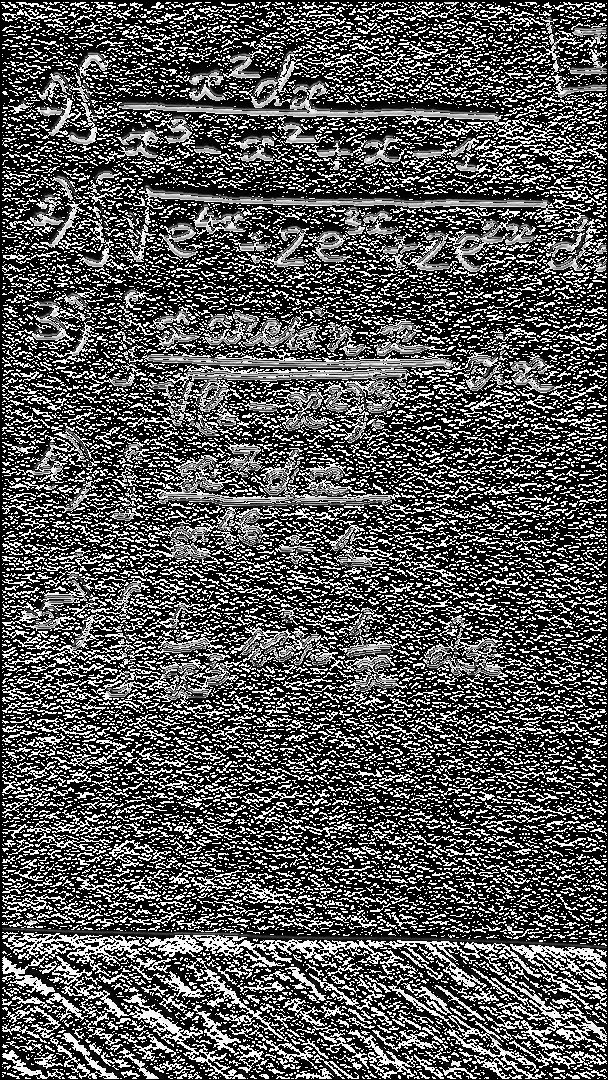 1) ∫ x²dx / (x³ - x² + x - 1)
2) ∫ √(e⁴ˣ - 2e³ˣ + 2e²ˣ) dx
3) ∫ x arcsin x / √(1 - x²)³ dx
4) ∫ x⁷dx / (x¹⁶ - 1)
5) ∫ 1/x³ sin 1/x dx